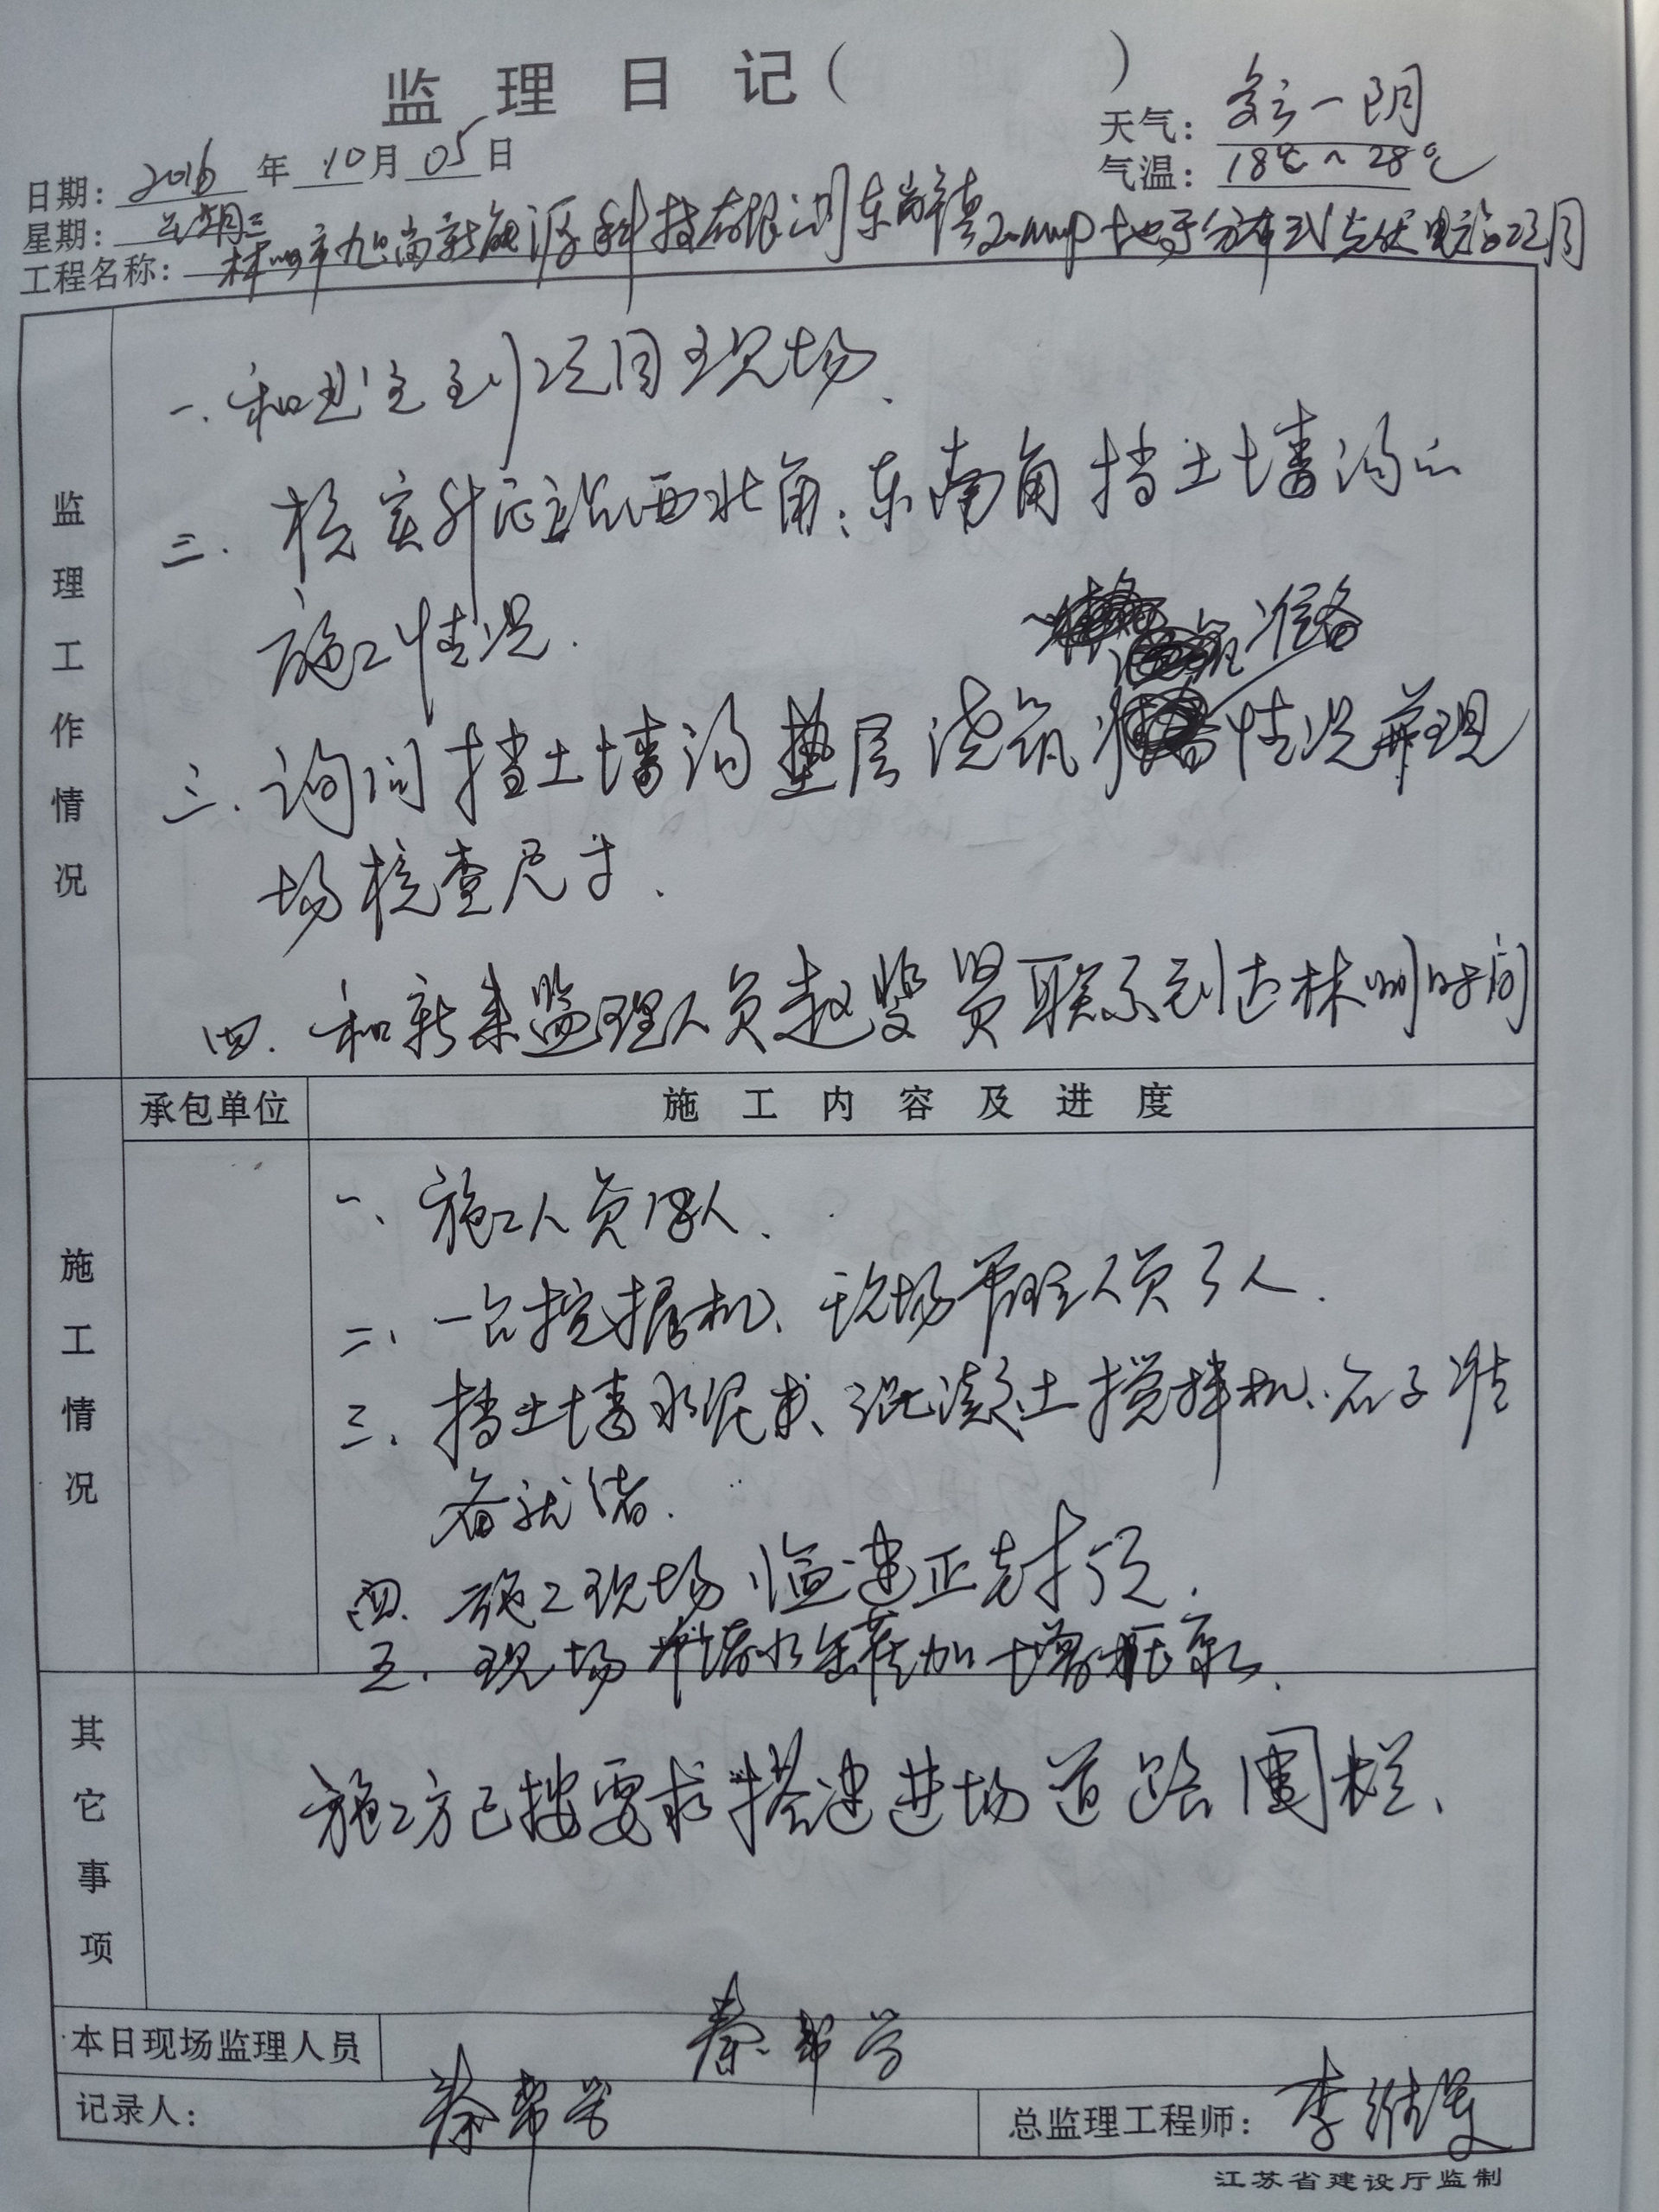 监理日记（　　　）
天气：多云—阴
日期：2016年10月05日
气温：18℃~28℃
星期：星期三
工程名称：林州市旭尚新能源科技有限公司东岗镇20MWP地面分布式光伏电站项目
监理工作情况
一、和业主到项目现场、
二、核实升压站西北角；东南角挡土墙沟的
施工情况.
准备
三、询问挡土墙沟垫层浇筑情况并现
场核查尺寸、
四、和新来监理人员赵贤联系到达林州时间
承包单位 施工内容及进度
施工情况
一、施工人员人、
二、一台挖掘机、现场管理人员3人.
三、挡土墙水泥、混凝土搅拌机、石子准
备就绪.
四、施工现场临建正封顶.
五、现场储水罐加增压泵.
其它事项
施工方已按要求搭建进场道路围栏、
本日现场监理人员 秦帮学
记录人：秦帮学 总监理工程师：李继
江苏省建设厅监制